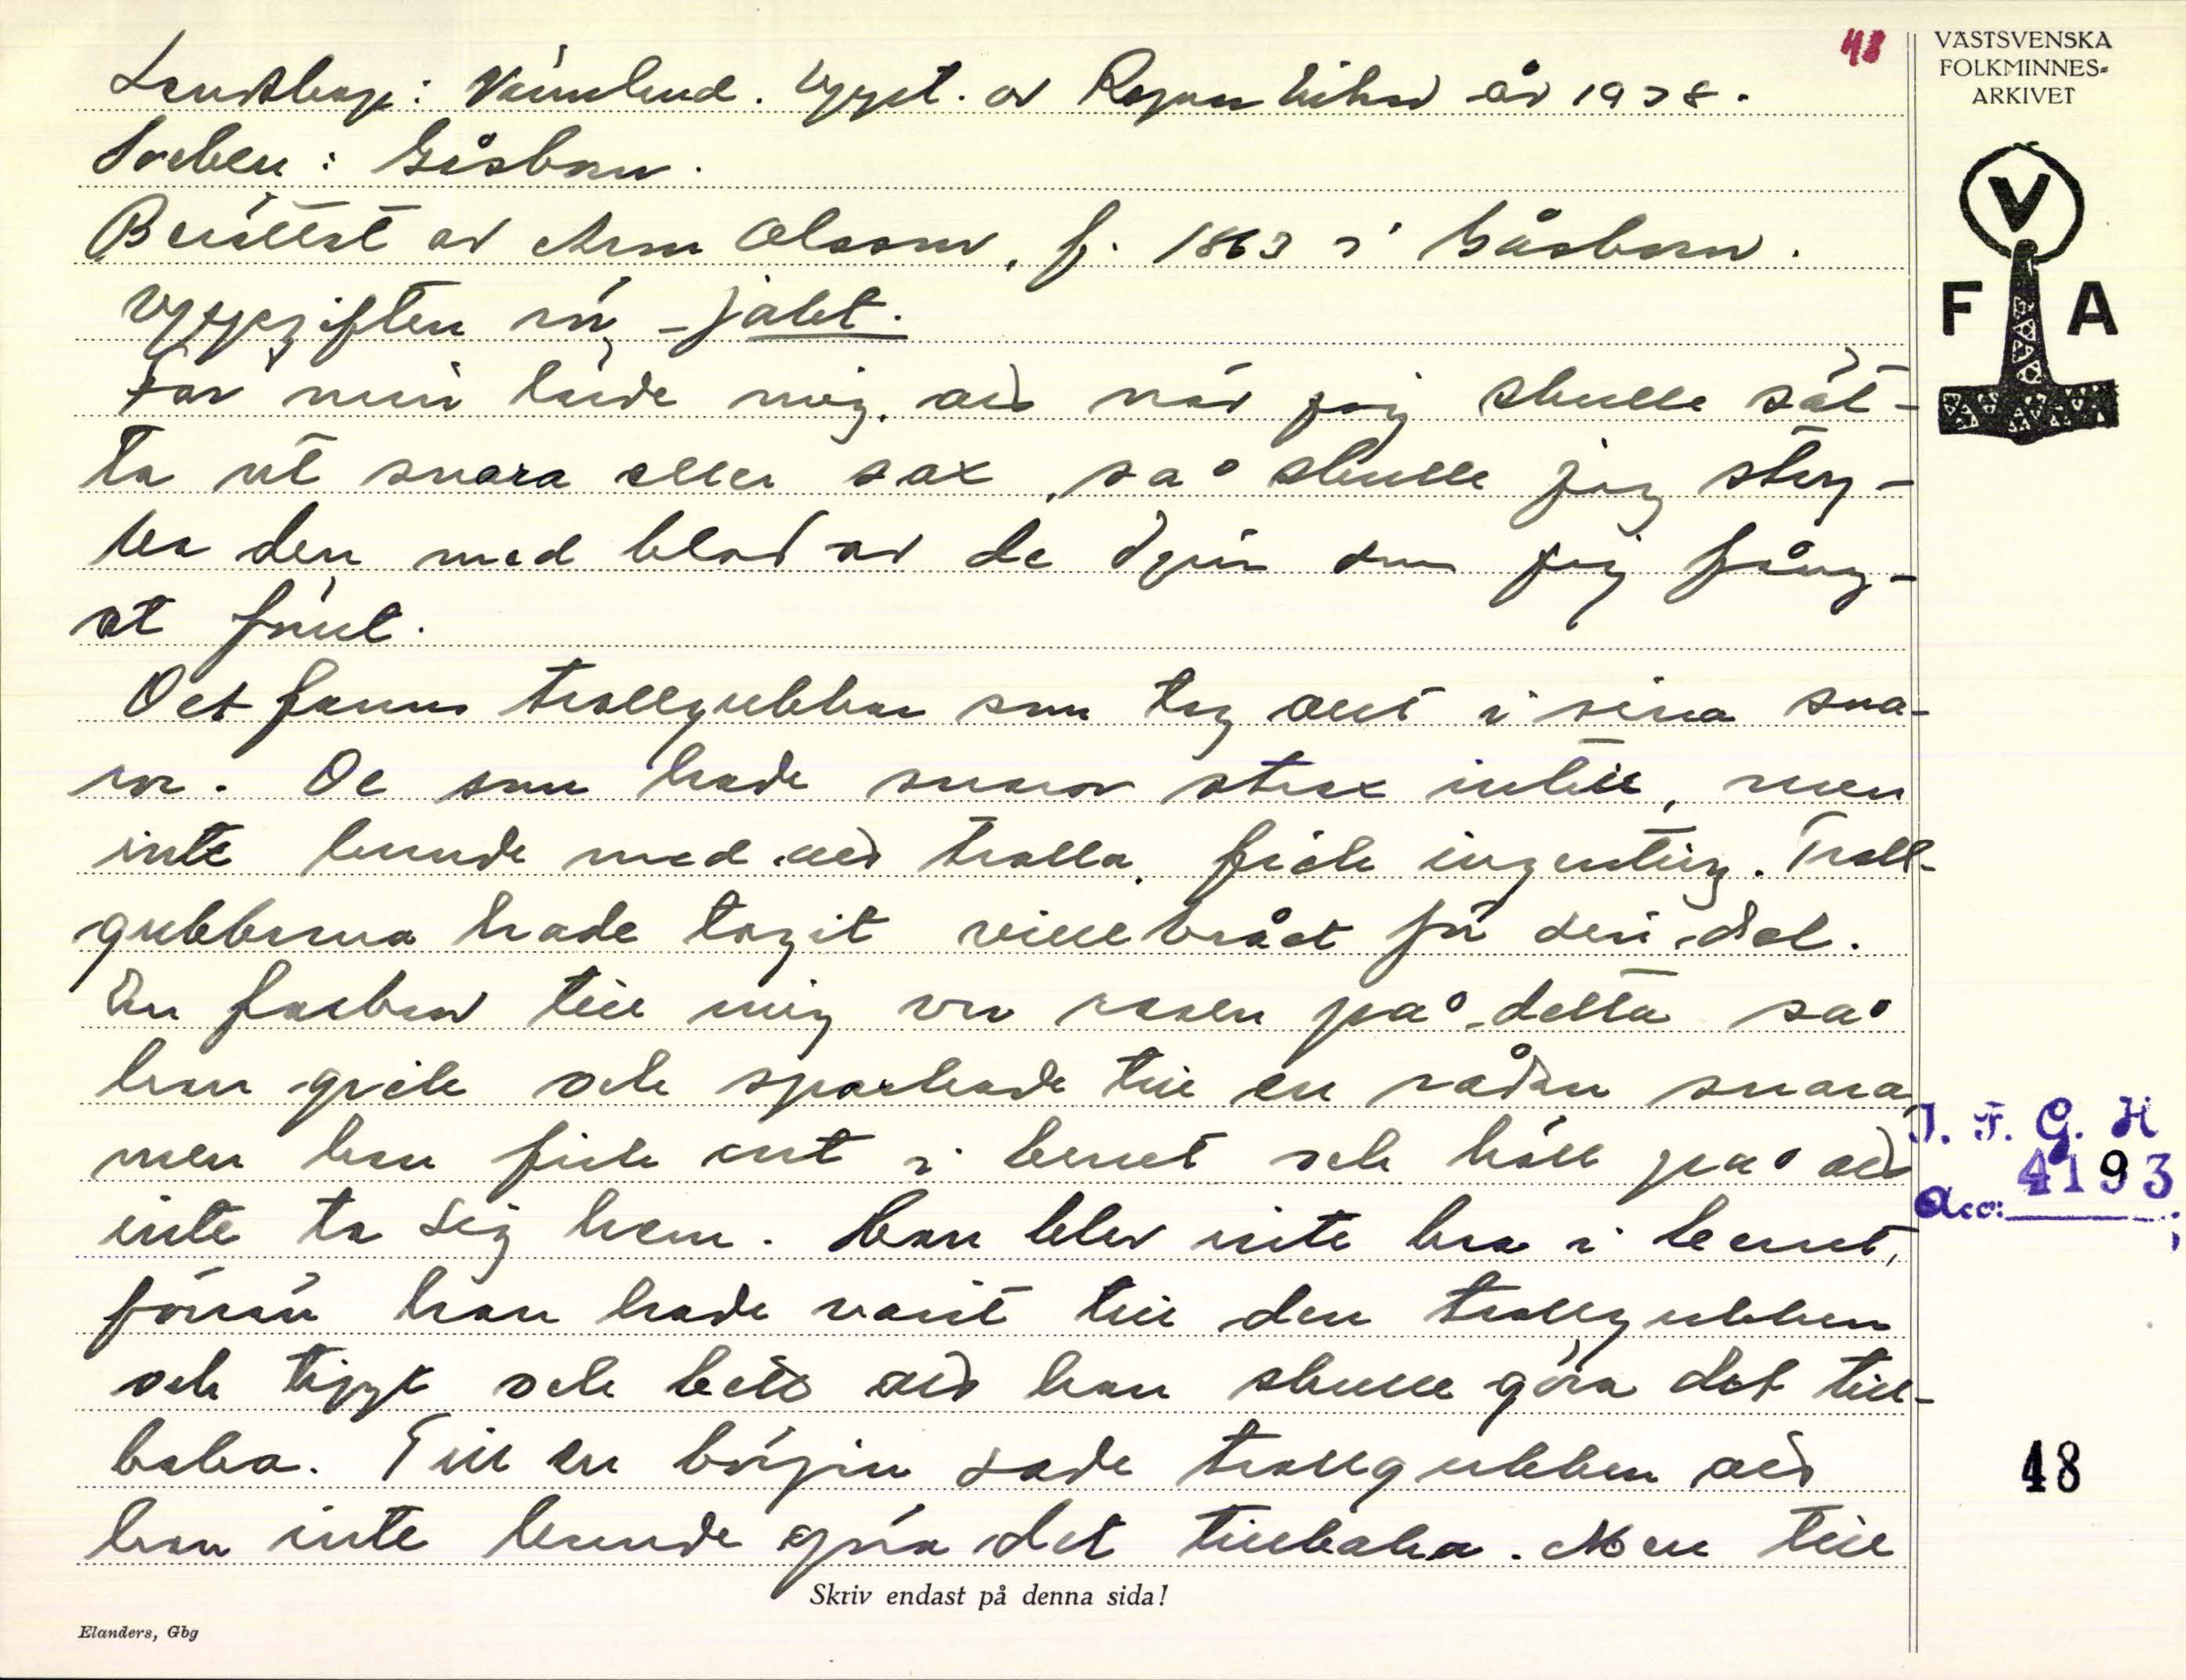 48
VÄSTSVENSKA
FOLKMINNES-
ARKIVET
V
F A
Landskap: Värmland. Uppt. av Ragnar Nilsson år 1938.
Socken: Gåsborn.
Berättat av Olsson, f. 1863 i Gåsborn.
Uppgiften rör jakt.
Far min lärde mig, att när jag skulle sät-
ta ut snara eller sax, så skulle jag stry-
ka den med blod av de djur som jag fång-
at förut.
Det fanns trollgubbar som tog allt i sina sna-
ror. De som hade snaror strax intill, men
inte kunde med att trolla, fick ingenting. Troll-
gubbarna hade tagit villebrådet för sin del.
En farbror till mig var rasen på detta så
han gick och sparkade till en sådan snara,
men han fick ont i benet och höll på att
inte ta sig hem. Han blev inte bra i benet,
förrän han hade varit till den trollgubben
och tiggt och bett att han skulle göra det till-
baka. Till en början sade trollgubben att
han inte kunde göra det tillbaka. Men till
J. F. G. H
4193
Acc:
48
Skriv endast på denna sida!
Elanders, Gbg